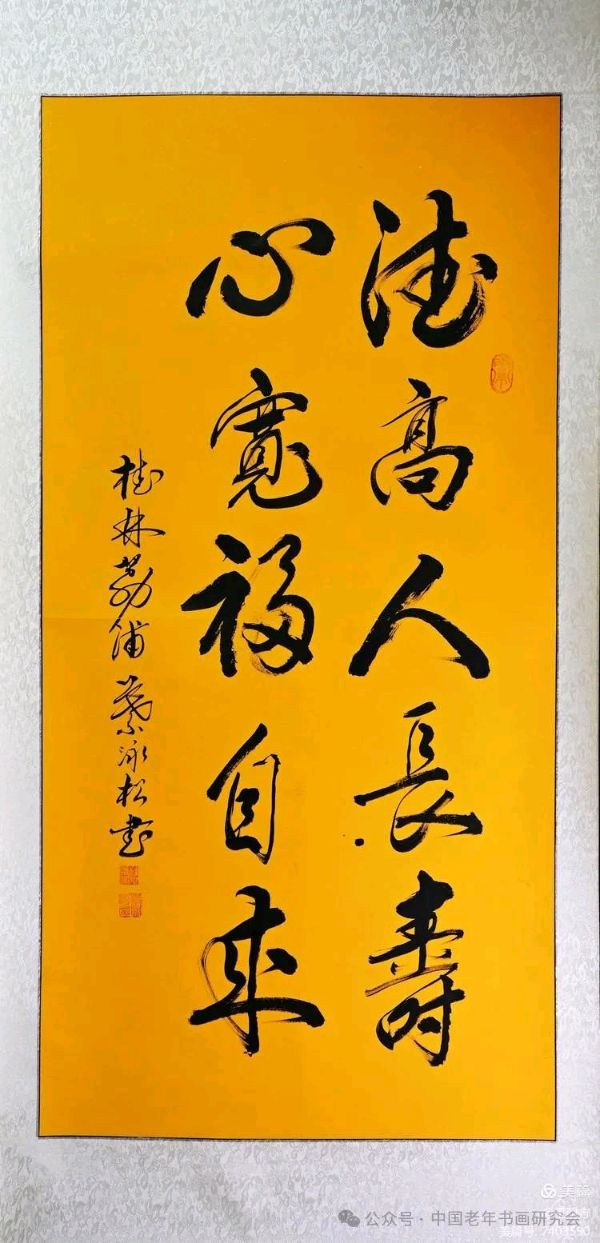 德高人長壽
心寬福自来
桂林荔浦蒙泳松書
美篇
公众号·中国老年书画研究会